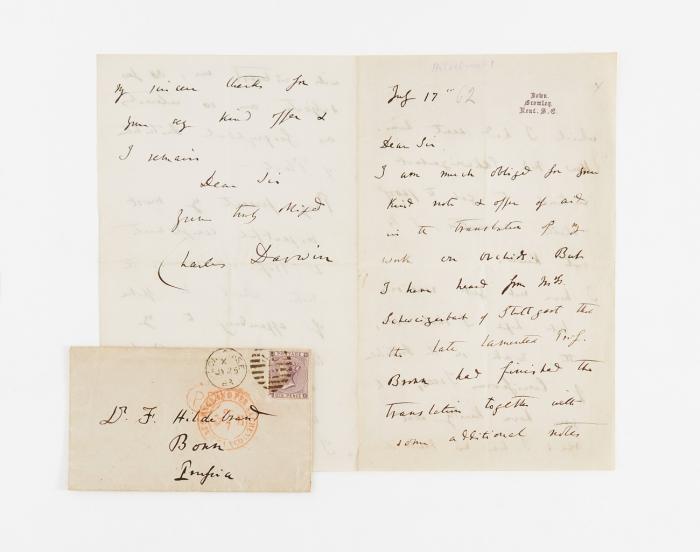 my sincere thanks for
your very kind offer &
I remain
Dear Sir
yours truly obliged
Charles Darwin
Hildebrand
July 17th 62
Down.
Bromley.
Kent. S.E.
Dear Sir
I am much obliged for your
kind note & offer of aid
in the translation of my
work on Orchids. But
I have heard from Mess
Schweizerbart of Stuttgart that
the late lamented Prof.
Bronn had finished the
translation together with
some additional notes
POSTAGE
SIX PENCE
Dr. F. Hildebrand
Bonn
Prussia